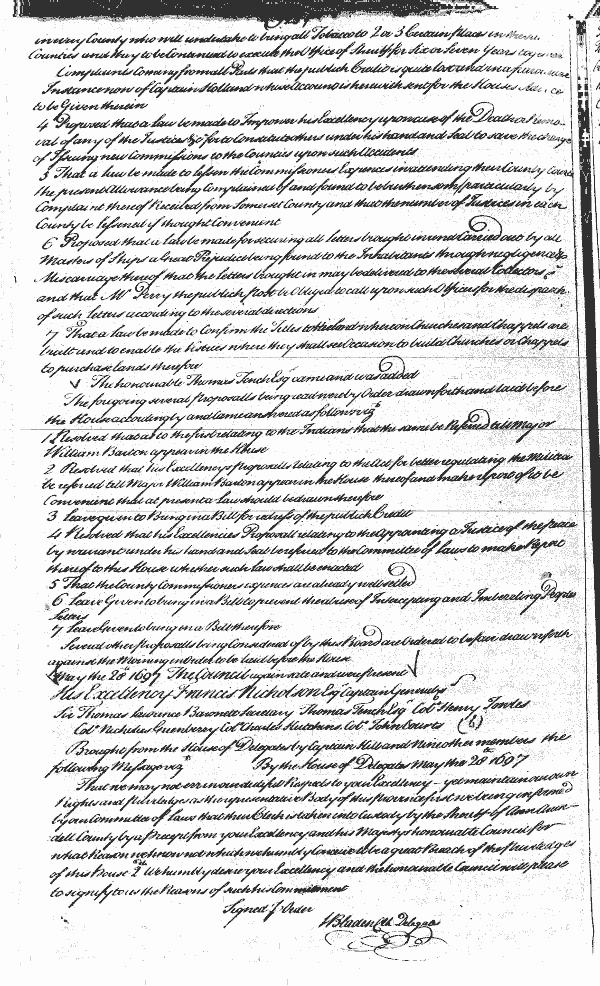 in every County who will undertake to bring all Tobacco to 2 or 3 Certain places in
Counties and they to be Continued to execute the Office of Sheriff for Six or Seven Years
Complaints Coming from all Parts that the publick Credit is quite lost and in a particular
Instance now of Captain Holland whose Account is herewith sent for the Houses Advice
to be Given therein
4 Proposed that a law be made to Impower his Excellency upon notice of the Death or Remo-
val of any of the Justices &c for to Constitute others under his hand and Seal to save the charge
of Issuing new Commissions to the Counties upon such Accidents
5 That a law be made to lessen the Commissioners Expences in attending their County Courts
the present Allowance being Complained of and found to be burthensome particularly by
Complaint thereof Received from Somerset County and that the number of Justices in each
County be lessened if thought Convenient
6 Proposed that a law be made for securing all letters brought in and Carried out by all
Masters of Ships a Great Prejudice being found to the Inhabitants through negligence &
Miscarriage thereof that the letters brought in may be delivered to the Several Collectors &c
and that Mr Perry the publick post be Obliged to call upon such Officers for the dispatch
of such letters according to the several directions
7 That a law be made to Confirm the Titles to the land whereon Churches and Chappels are
built and to enable the Vestries where they shall see Occasion to build Churches or Chappels
to purchase lands therefore
The honourable Thomas Tench Esqr came and was added
The foregoing several Proposalls being read were by Order drawn forth and laid before
the House accordingly and came answered as follows vizt
1 Resolved that as to the first relating to the Indians that the same be Referred till Major
William Barton appear in the House
2 Resolved that his Excellencys Proposalls relating to the Act for better regulating the Militia
be referred till Major William Barton appear in the House thereof and make report if to be
Convenient that at present a law should be drawn therefore
3 Leave given to Bring in a Bill for redress of the publick Credit
4 Resolved that his Excellencies Proposall relating to the appointing a Justice of the peace
by warrant under his hand and Seal be refered to the Committee of laws to make Report
thereof to this House whether such law shall be enacted
5 That the County Commissioners expences are already well setled
6 Leave Given to bring in a Bill to prevent the abuse of Intercepting and Imbezeling Peoples
letters
7 Leave Given to bring in a Bill therefore
Several other Proposalls being Considered of by this Board are Ordered to be fair drawn forth
against the Morning in Order to be laid before the House
May the 28th 1697 The Council again sate and were present
His Excellency Francis Nicholson Esqr Captain General &c
Sir Thomas Lawrence Baronett Secretary Thomas Tench Esqr Colo Henry Jowles
Colo Nicholas Greenberry Colo Charles Hutchins Colo John Courts
Brought from the House of Delegates by Captain Hill and Nine other members the
following Message vizt By the House of Delegates May the 28th 1697
That we may not err in our dutifull Respects to your Excellency yet maintain our own
Rights and Priviledges as the representative Body of this province first we being informed
by our Committee of laws that their Clerk is taken into Custody by the Sheriff of Ann Arun-
dell County by a Precept from your Excellency and his Majestys honourable Council for
what Reason we know not which we humbly Conceive to be a great Breach of the Priviledges
of this House 2d We humbly desire your Excellency and the honourable Council will please
to signify to us the Reasons of such his Commitment
Signed p Order
W Bladen Clk Delegates